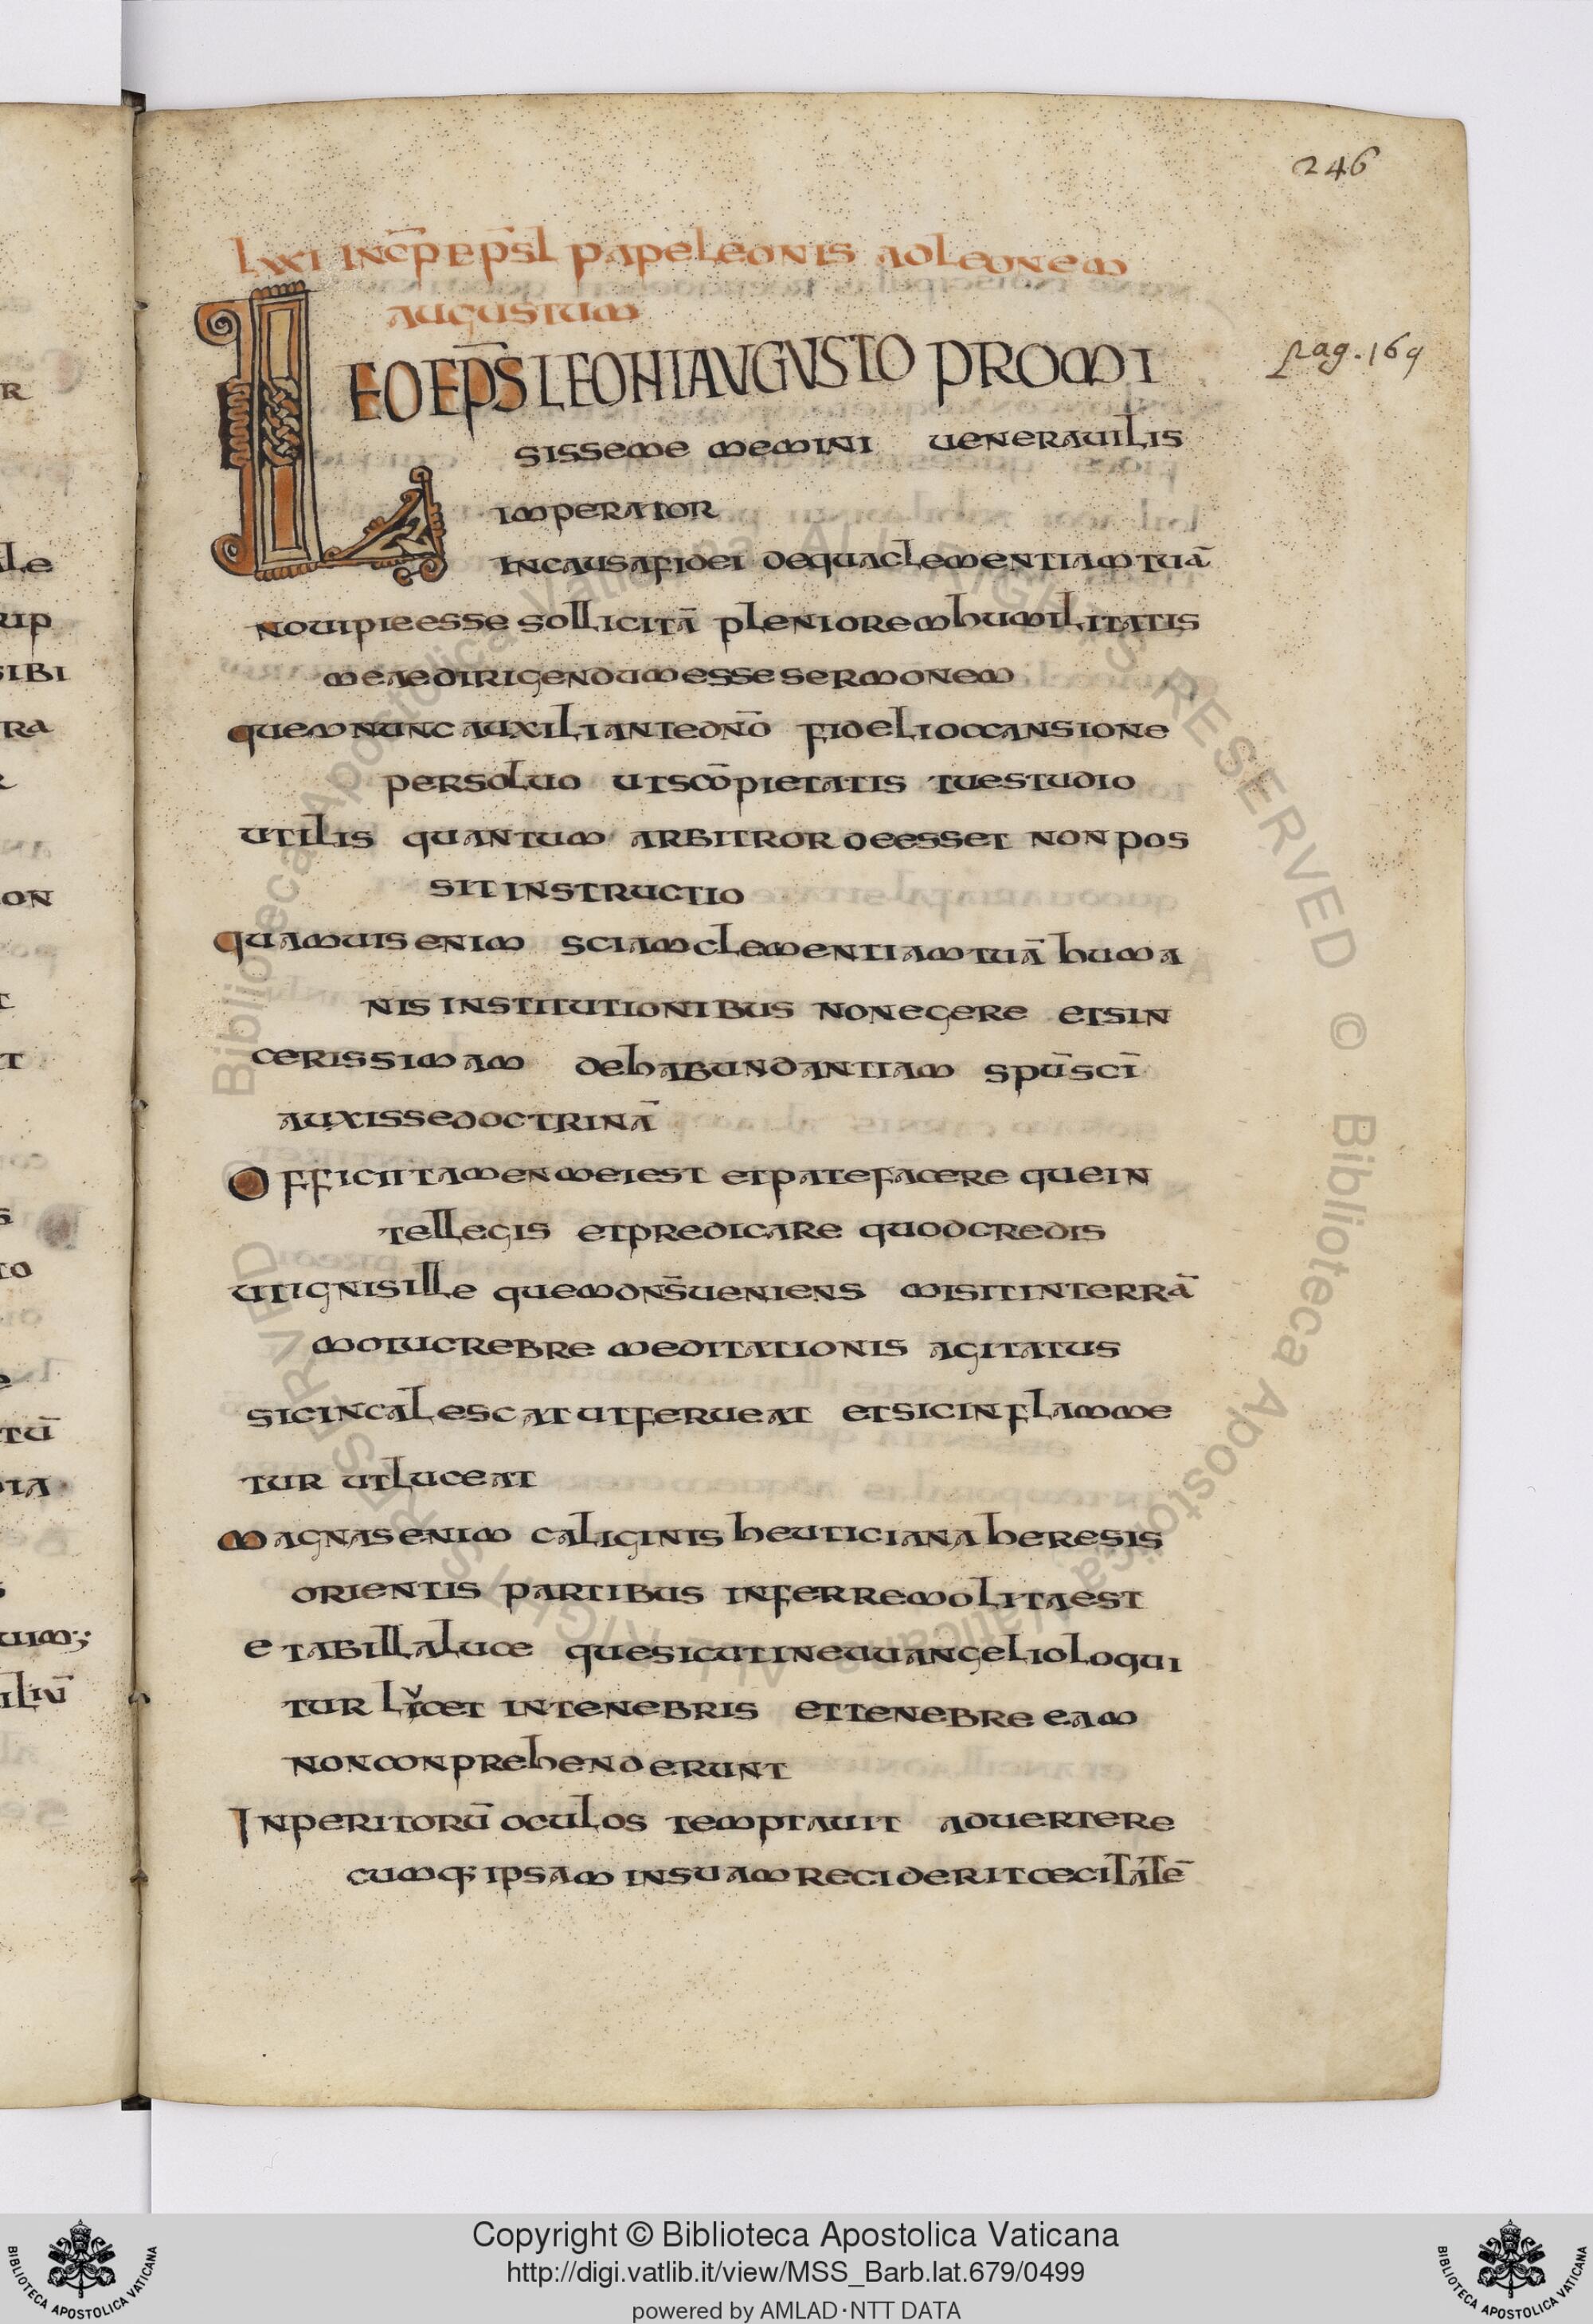 246
LXXI INCP̄ EPS̄L PAPE LEONIS AD LEONEM
AUGUSTUM
LEO EP̄S LEONI AVGVSTO PROMI
pag. 169
SISSEME MEMINI UENERAUILIS
IMPERATOR
IN CAUSA FIDEI DE QUA CLEMENTIAM TUĀ
NOUI PIE ESSE SOLLICITĀ PLENIOREM HUMILITATIS
MEAE DIRIGENDUM ESSE SERMONEM
QUEM NUNC AUXILIANTE DN̄O FIDELI OCCANSIONE
PERSOLUO UT SCŌ PIETATIS TUE STUDIO
UTILIS QUANTUM ARBITROR DEESSET NON POS
SIT INSTRUCTIO
QUAMUIS ENIM SCIAM CLEMENTIAM TUĀ HUMA
NIS INSTITUTIONIBUS NON EGERE ET SIN
CERISSIMAM DE HABUNDANTIAM SPŪS SCĪ
AUXISSE DOCTRINĀ
OFFICII TAMEN MEI EST ET PATEFACERE QUE IN
TELLEGIS ET PREDICARE QUOD CREDIS
UT IGNIS ILLE QUEM DN̄S UENIENS MISIT IN TERRĀ
MOTU CREBRE MEDITATIONIS AGITATUS
SIC INCALESCAT UT FERUEAT ET SIC INFLAMME
TUR UT LUCEAT
MAGNAS ENIM CALIGINIS HEUTICIANA HERESIS
ORIENTIS PARTIBUS INFERRE MOLITA EST
ET AB ILLA LUCE QUE SICUT IN EUUANGELIO LOQUI
TUR LICET IN TENEBRIS ET TENEBRE EAM
NON CONPREHENDERUNT
INPERITORŪ OCULOS TEMPTAUIT ADUERTERE
CUMQ; IPSAM IN SUAM RECIDERIT CECITATĒ
Copyright © Biblioteca Apostolica Vaticana
http://digi.vatlib.it/view/MSS_Barb.lat.679/0499
powered by AMLAD·NTT DATA